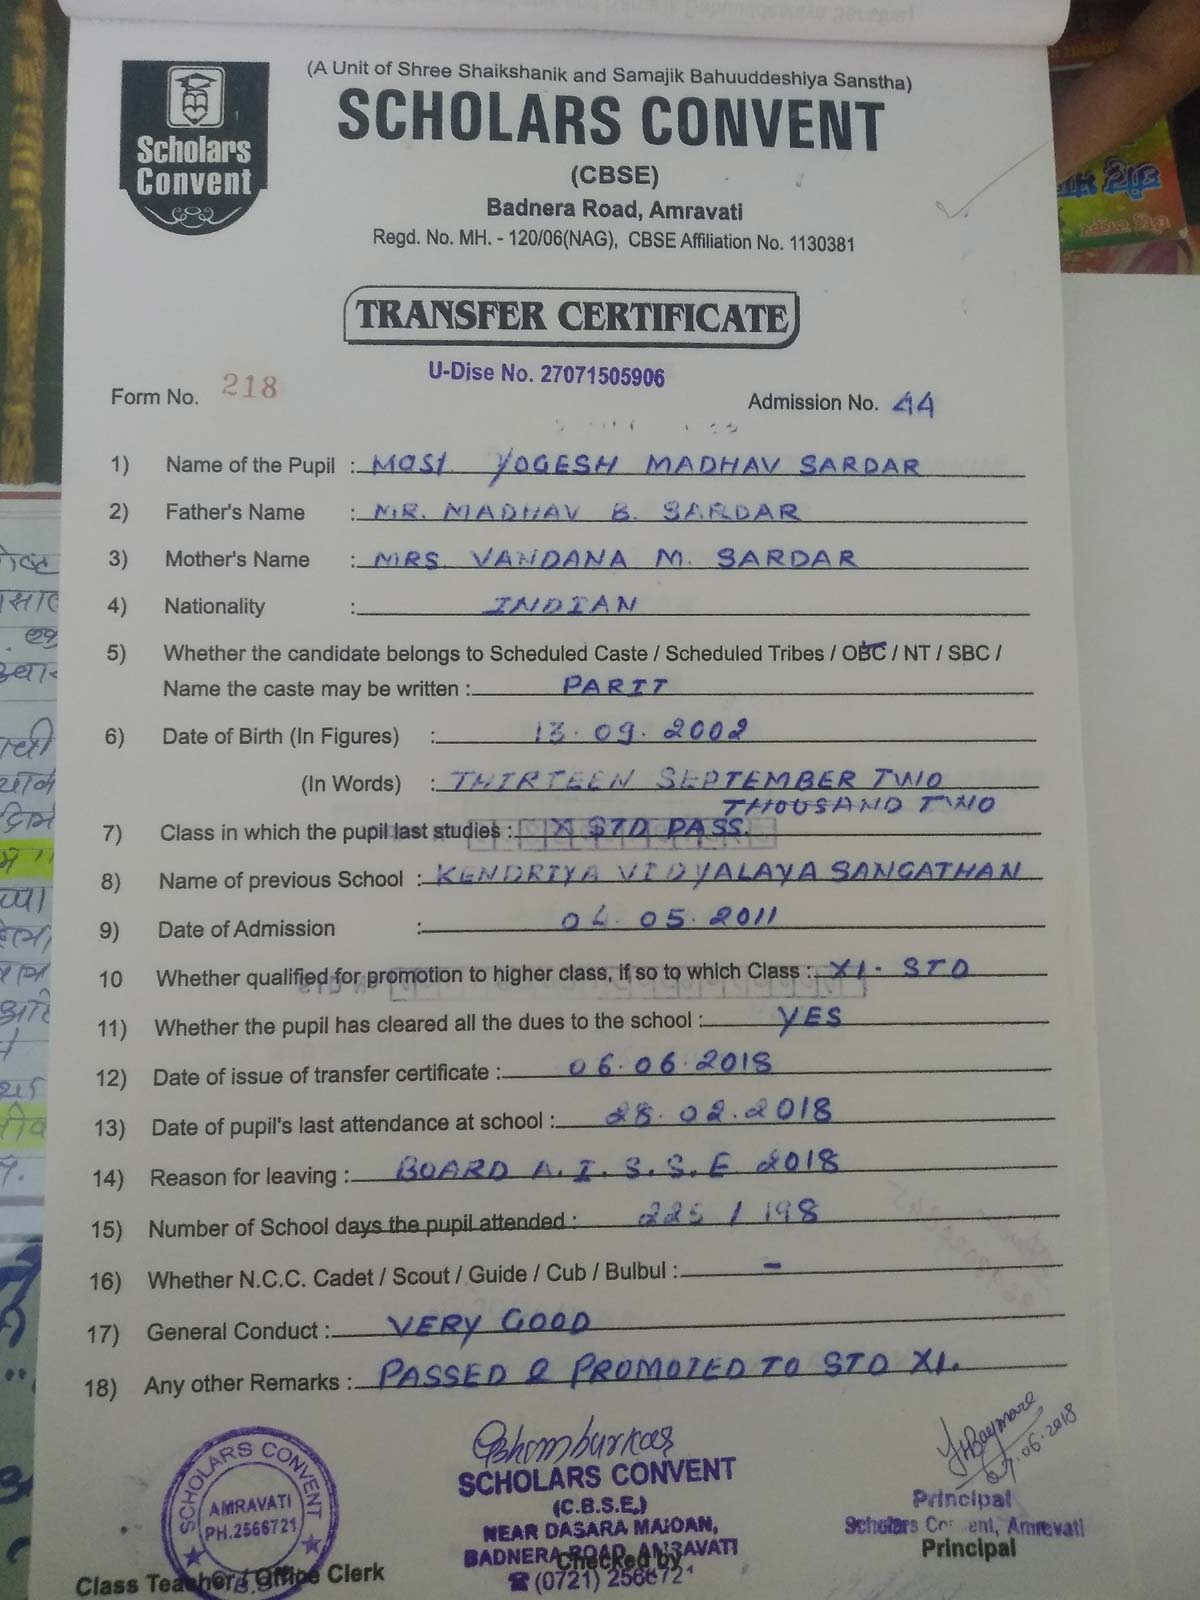 (A Unit of Shree Shaikshanik and Samajik Bahuuddeshiya Sanstha)
SCHOLARS CONVENT
Scholars
Convent
(CBSE)
Badnera Road, Amravati
Regd. No. MH. - 120/06(NAG), CBSE Affiliation No. 1130381
TRANSFER CERTIFICATE
U-Dise No. 27071505906
Form No. 218
Admission No. 44
1) Name of the Pupil : Mast. YOGESH MADHAV SARDAR
2) Father's Name : MR. MADHAV B. SARDAR
3) Mother's Name : MRS. VANDANA M. SARDAR
4) Nationality : INDIAN
5) Whether the candidate belongs to Scheduled Caste / Scheduled Tribes / OBC / NT / SBC /
Name the caste may be written : PARIT
6) Date of Birth (In Figures) : 13.09.2002
(In Words) : THIRTEEN SEPTEMBER TWO
THOUSAND TWO
7) Class in which the pupil last studies : X STD PASS.
8) Name of previous School : KENDRIYA VIDYALAYA SANGATHAN
9) Date of Admission : 04.05.2011
10 Whether qualified for promotion to higher class, if so to which Class : XI. STD
11) Whether the pupil has cleared all the dues to the school : YES
12) Date of issue of transfer certificate : 06.06.2018
13) Date of pupil's last attendance at school : 28.02.2018
14) Reason for leaving : BOARD A.I.S.S.E 2018
15) Number of School days the pupil attended : 225 / 198
16) Whether N.C.C. Cadet / Scout / Guide / Cub / Bulbul : -
17) General Conduct : VERY GOOD
18) Any other Remarks : PASSED & PROMOTED TO STD XI.
SCHOLARS CONVENT
AMRAVATI
PH.2566721
Class Teacher / Office Clerk
SCHOLARS CONVENT
(C.B.S.E.)
NEAR DASARA MAIDAN,
BADNERA ROAD, AMRAVATI
Checked by
☎ (0721) 2566721
07.06.2018
Principal
Scholars Convent, Amravati
Principal